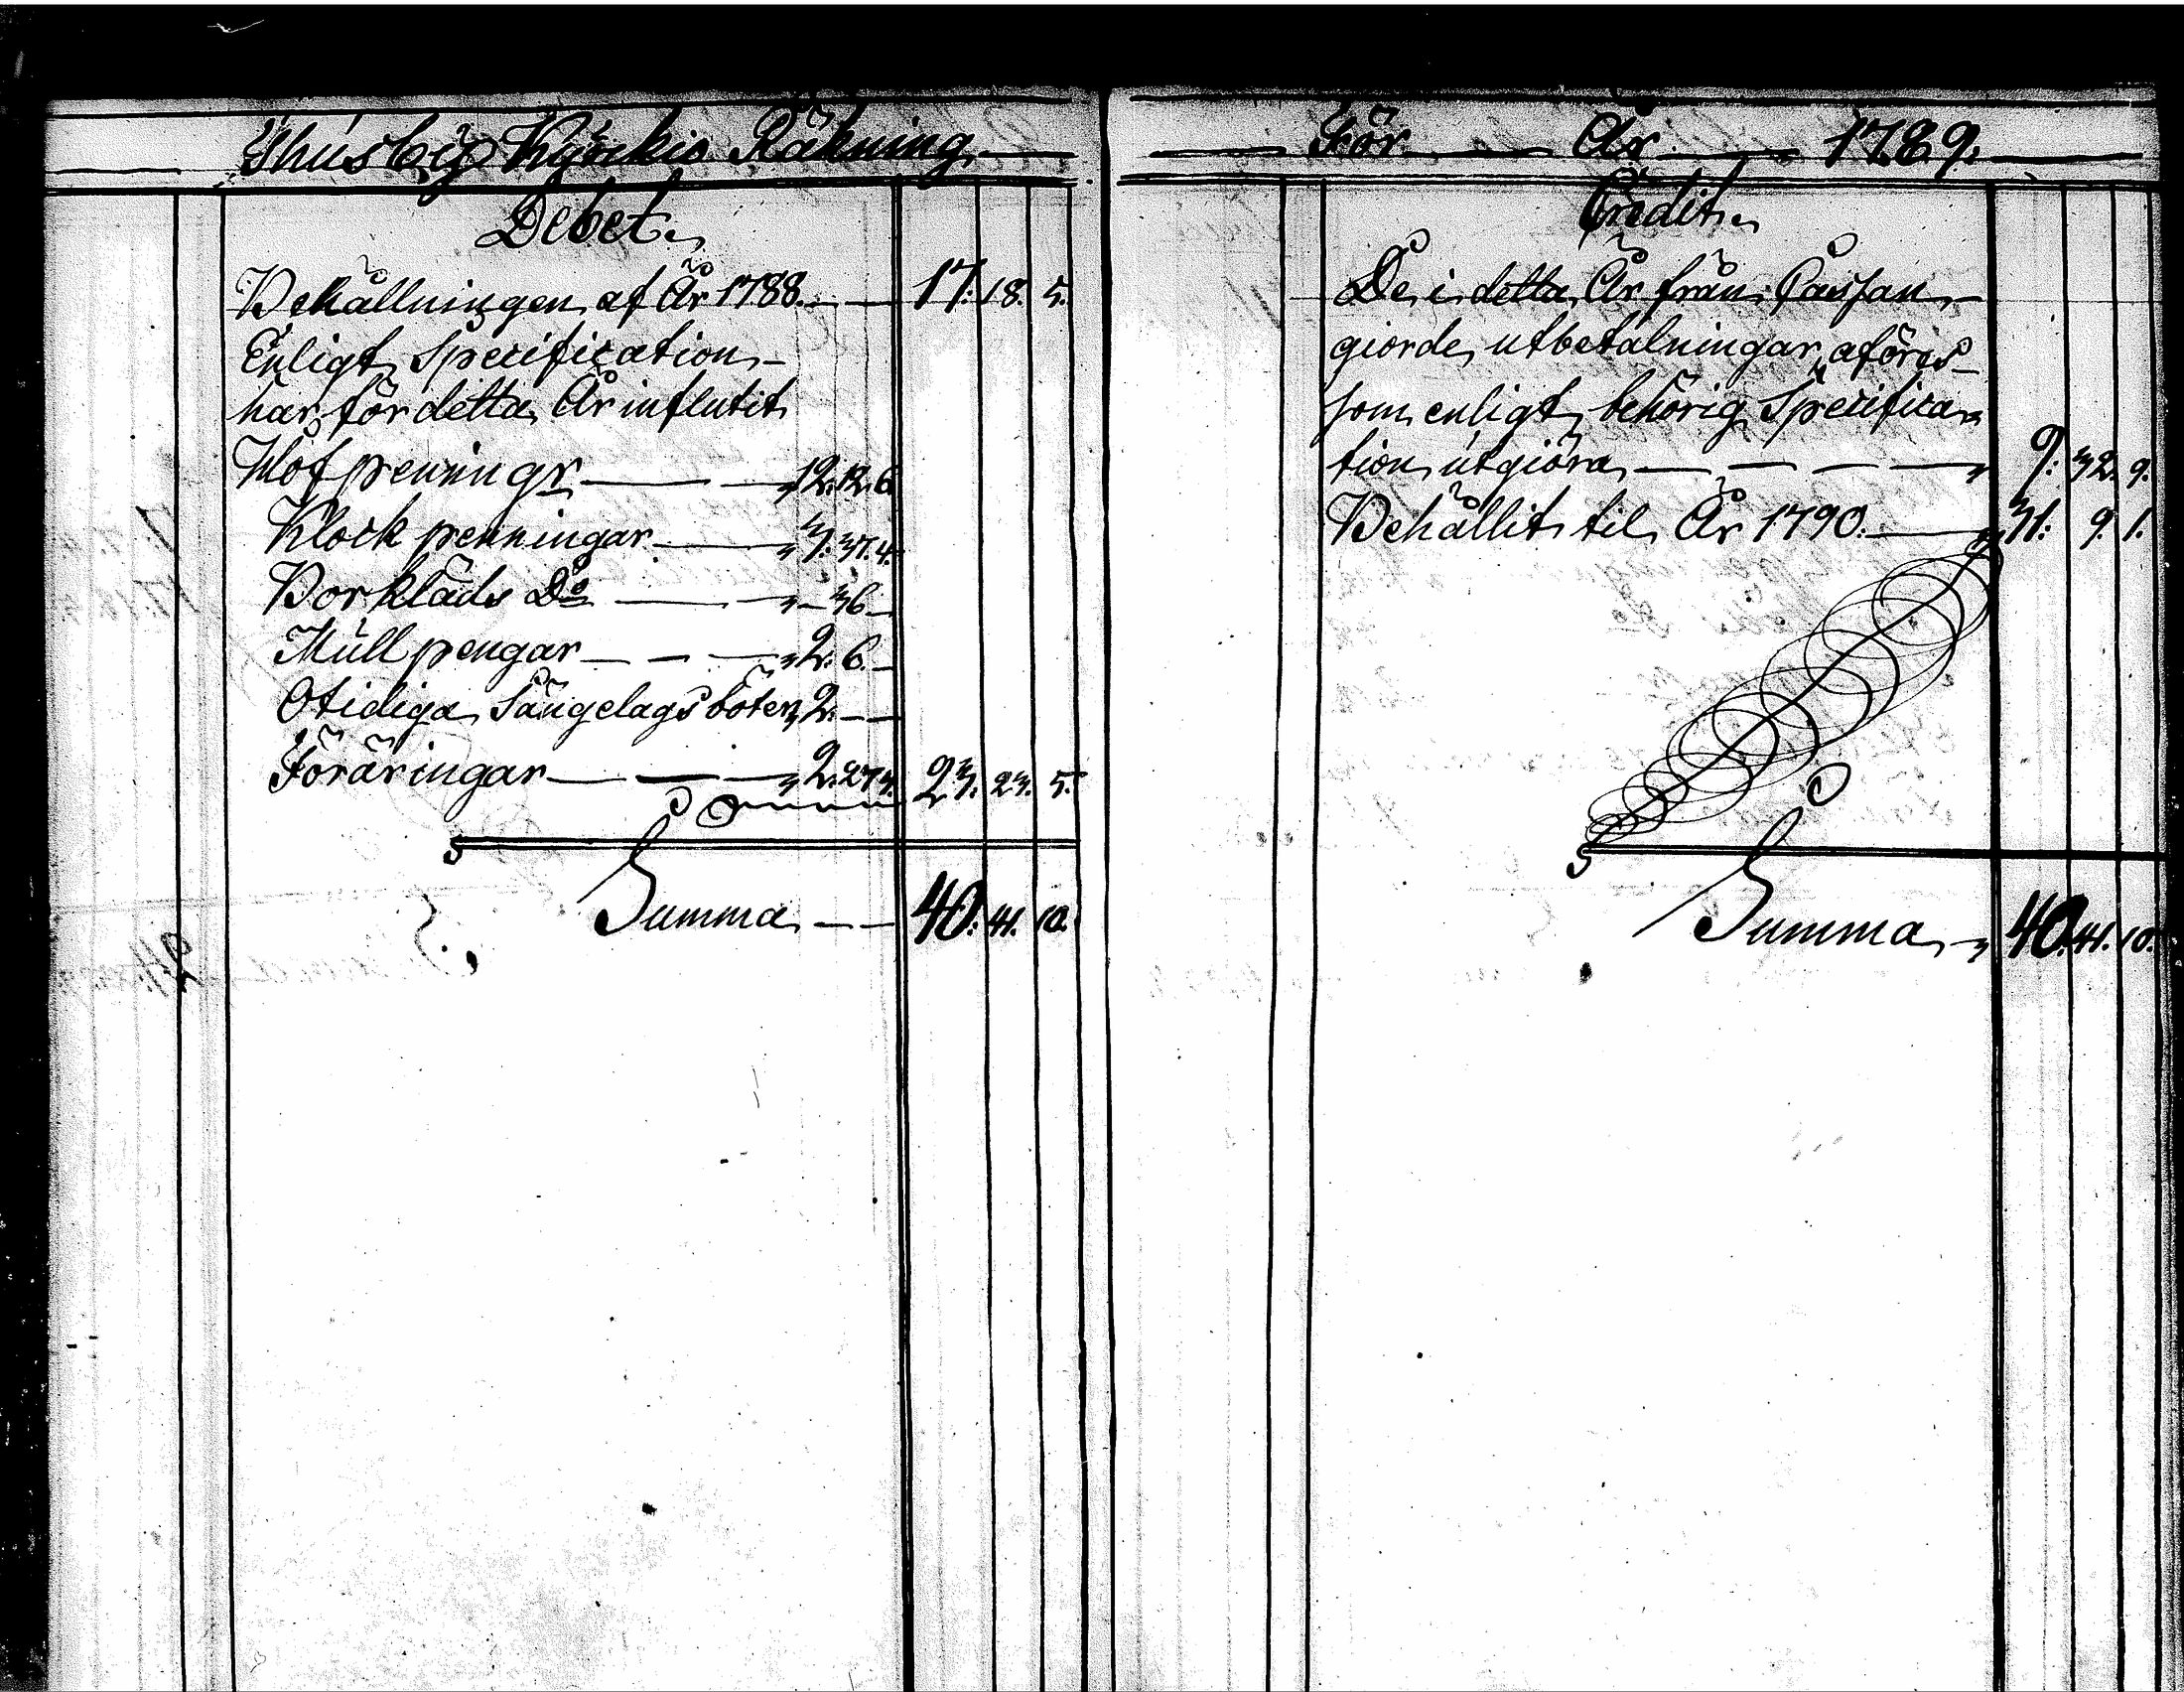 Husby Kyrkio Räkning
Debet.
Behållningen af År 1788. 17: 18. 5.
Enligt Specification
har för detta År influtit
Håfpenningr 12. 12. 6.
Klock penningar 3. 37. 4.
Bårklads Do 36
Mull pengar 2. 6.
Otidiga Sängelags böter 2.
Föräringar 2. 27. 7. 23. 23. 5.
Summa 40. 41. 10.
För År 1789.
Credit.
De i detta År från Cassan
giorde utbetalningar aföres
som enligt behörig Specifica
tion utgiöra 9: 32. 9.
Behållit til År 1790. 31: 9. 1.
Summa 40. 41. 10.